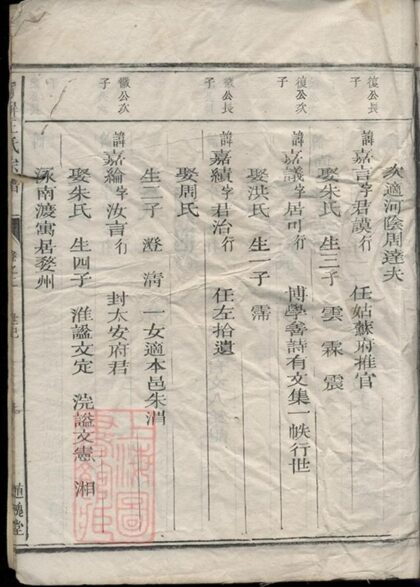 次適河陰周達夫
復公長子
諱嘉言字君謨行 任姑蘇府推官
娶朱氏 生三子 雲 霖 震
復公次子
諱嘉謀字居可行 博學善詩有文集一帙行世
娶洪氏 生一子 霈
公長子
諱嘉績字君治行 任左拾遺
娶周氏
生二子 澄 清 一女適本邑朱渭
公次子
諱嘉綸字汝言行 封太安府君
娶朱氏 生四子 淮謚文定 浣謚文憲 湘
涿南渡寓居婺州
王氏宗譜
世紀